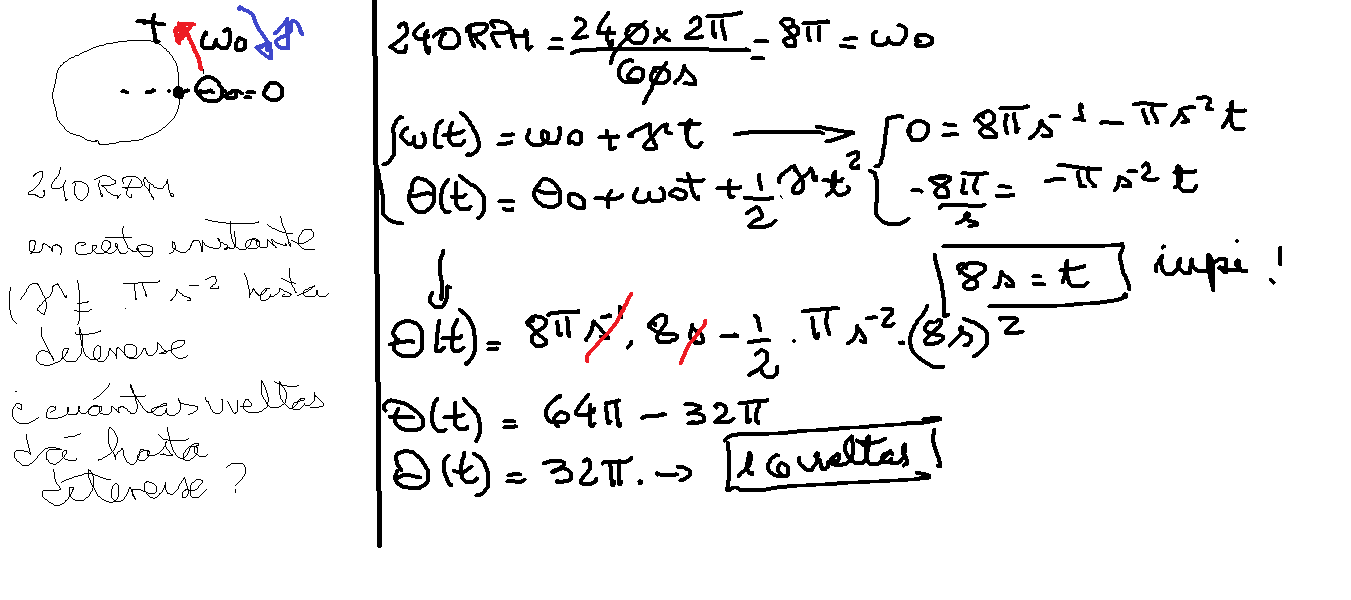 + ω₀ γ
θ₀=0
240RPM
en cierto instante
|γ|= π s⁻² hasta
detenerse
¿cuántas vueltas
dá hasta
detenerse?
240RPM = 240 x 2π / 60s = 8π = ω₀
ω(t) = ω₀ + γ t → 0 = 8π s⁻¹ - π s⁻² t
θ(t) = θ₀ + ω₀t + 1/2 γ t²
-8π/s = -π s⁻² t
8s = t iupi!
θ(t) = 8π s⁻¹ . 8s - 1/2 . π s⁻² . (8s)²
θ(t) = 64π - 32π
θ(t) = 32π. → 16 vueltas